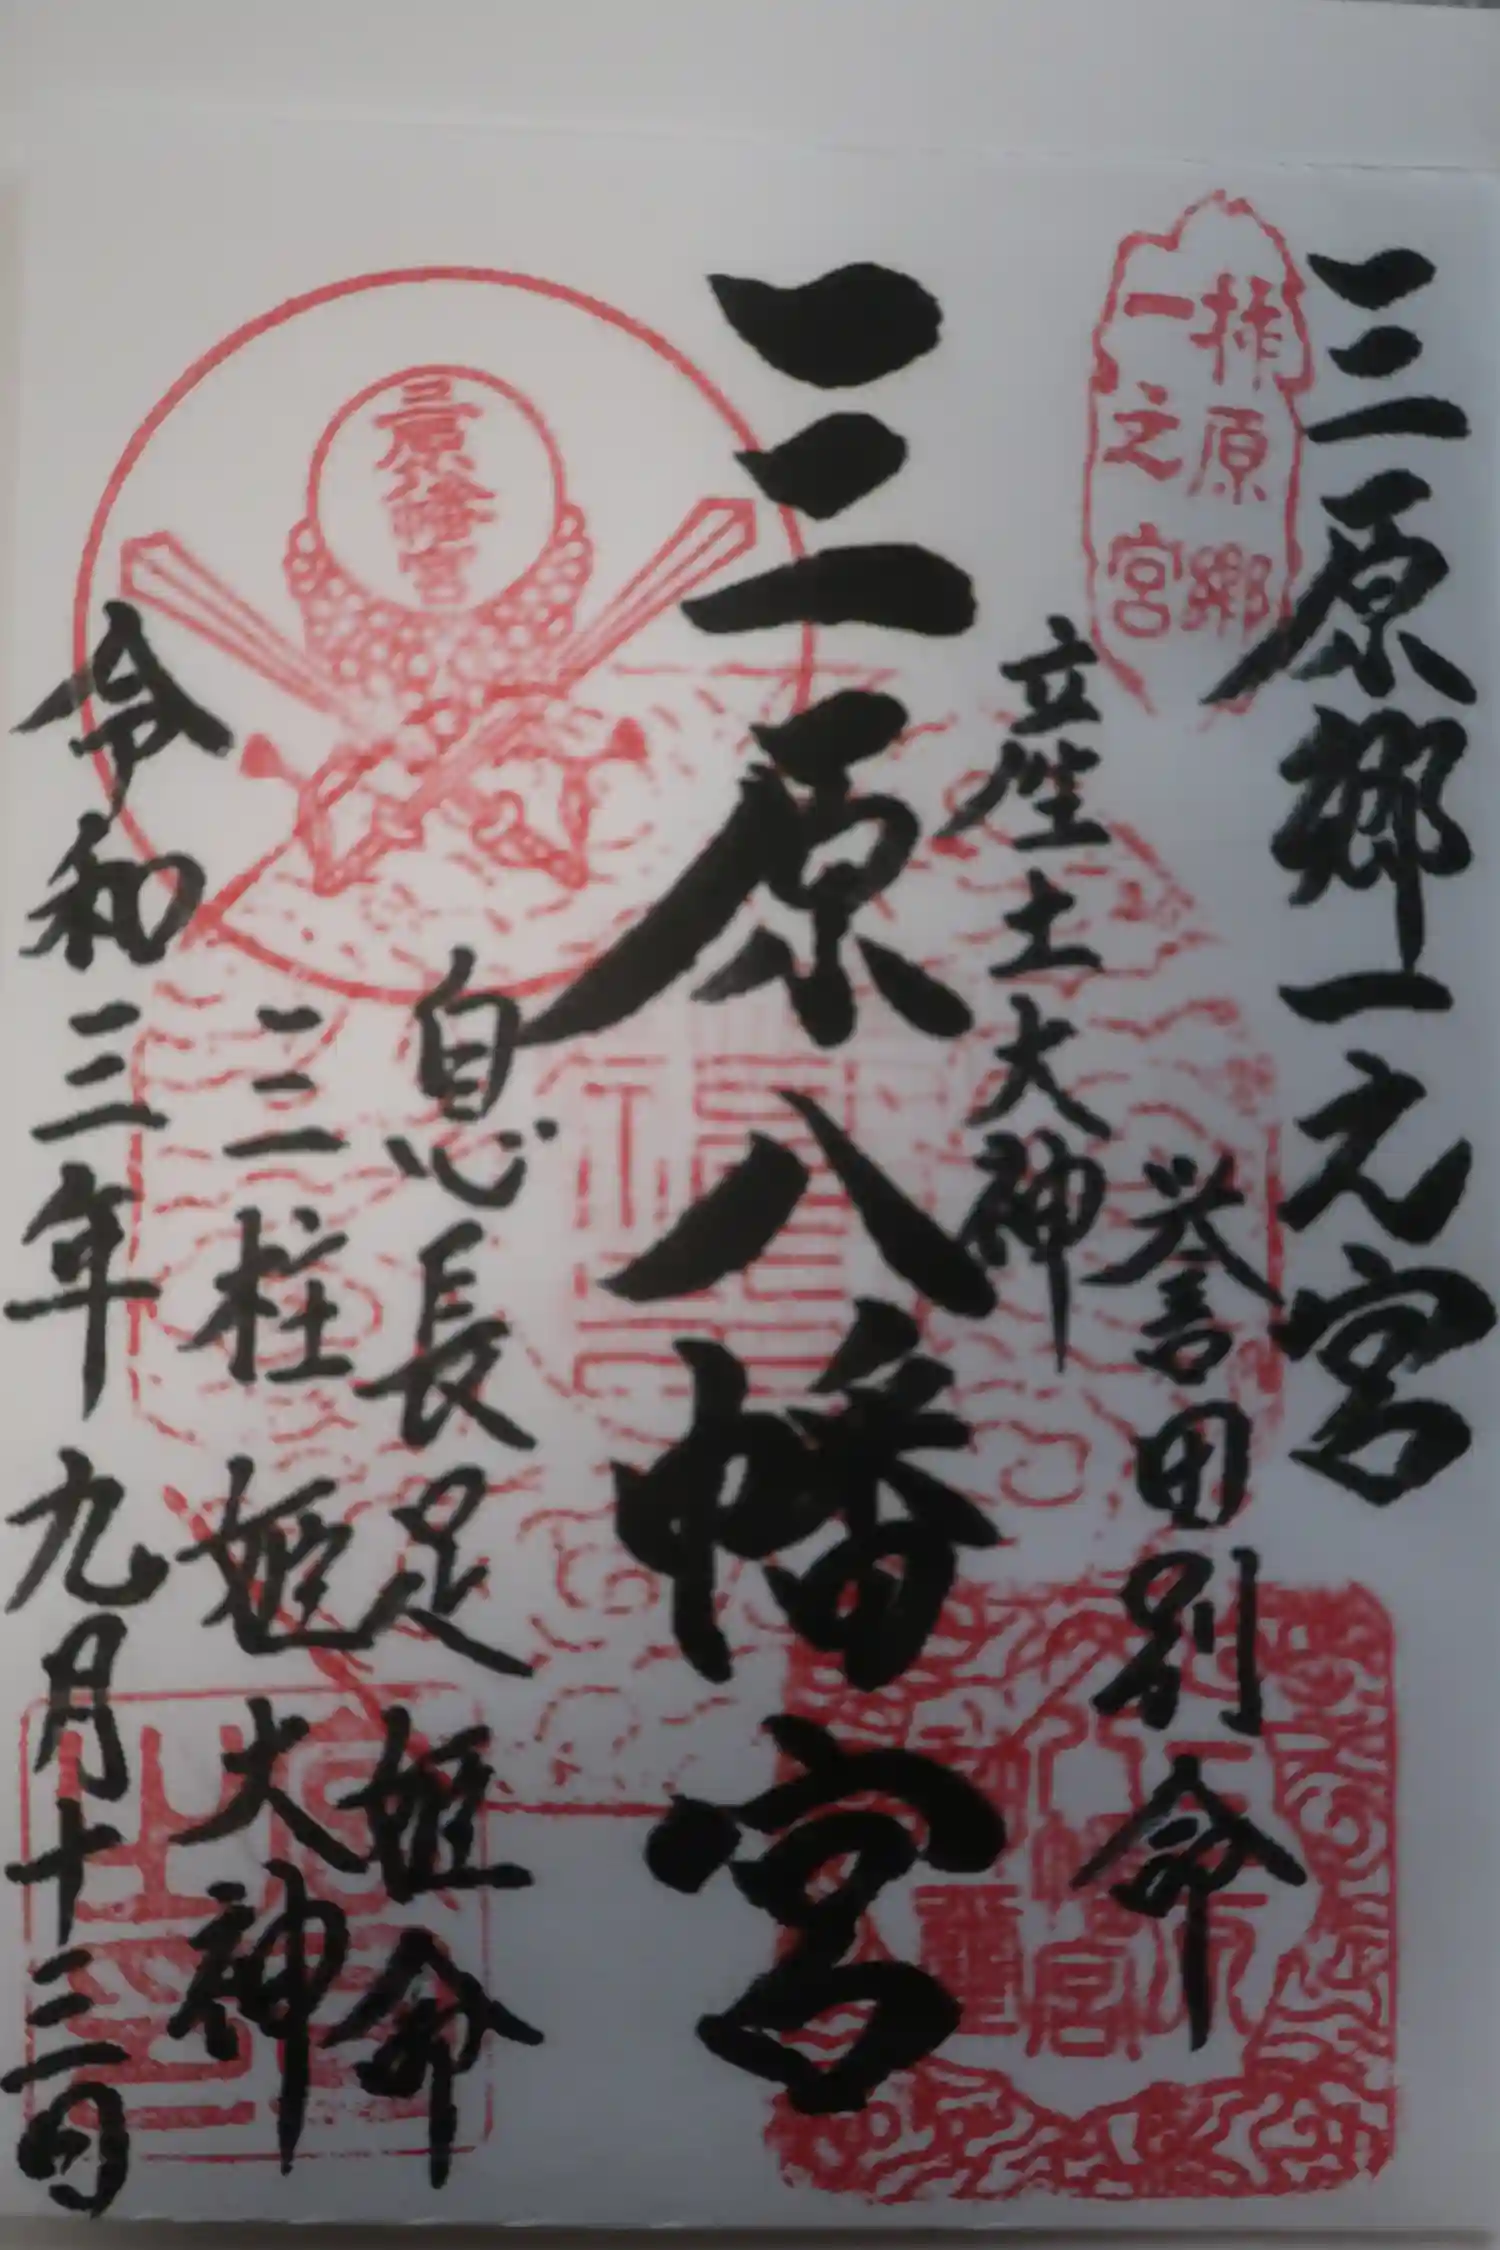 三原郷一元宮
一之宮
誉田別命
産土大神
三原八幡宮
三原八幡宮
息長足姫命
三柱姫大神
令和三年九月十三日